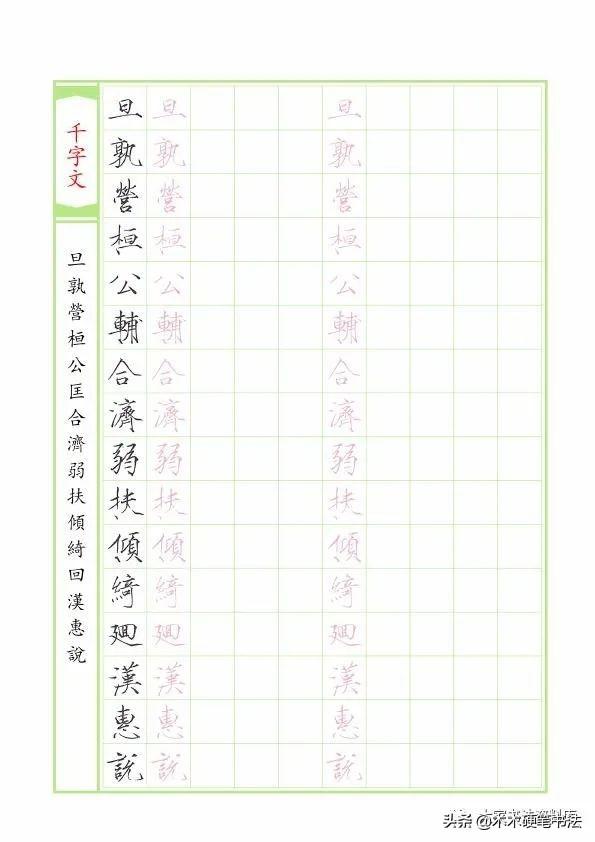 千字文
旦孰營桓公匡合濟弱扶傾綺回漢惠說
旦孰營桓公輔合濟弱扶傾綺廻漢惠說
旦孰營桓公輔合濟弱扶傾綺廻漢惠說
旦孰營桓公輔合濟弱扶傾綺廻漢惠說
头条 @木木硬笔书法